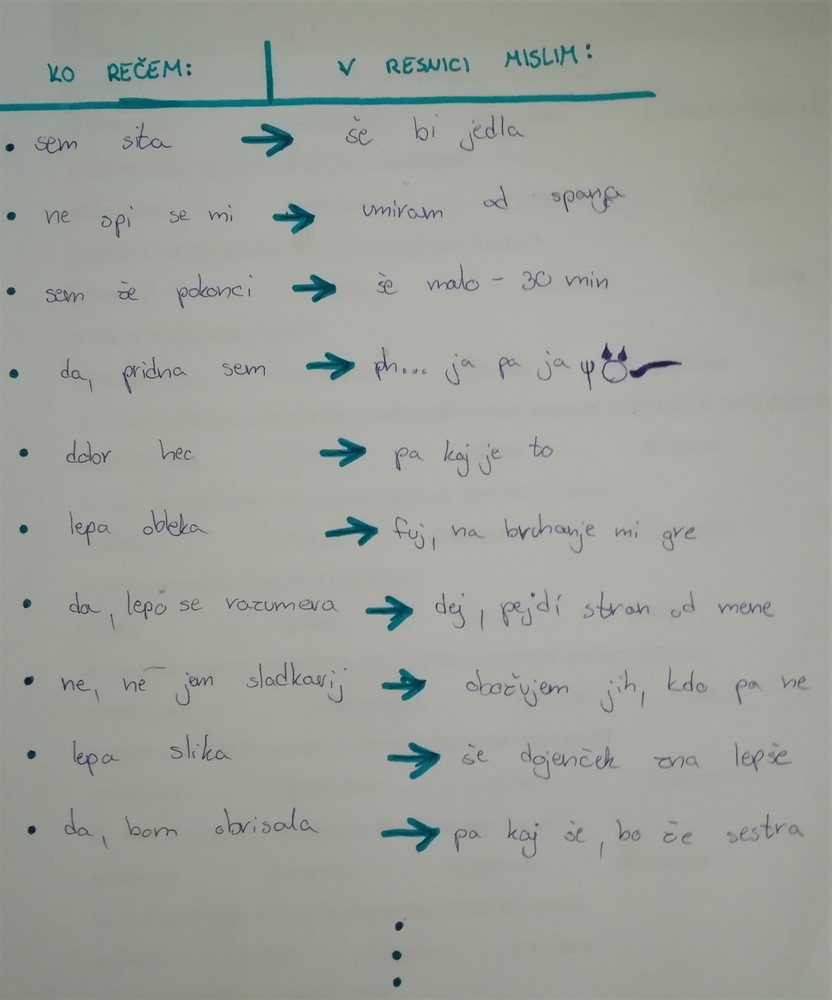 KO REČEM: V RESNICI MISLIM:
• sem sita → še bi jedla
• ne spi se mi → umiram od spanja
• sem že pokonci → še malo - 30 min
• da, pridna sem → ph... ja pa ja
• dobr hec → pa kaj je to
• lepa obleka → fuj, na bruhanje mi gre
• da, lepo se razumeva → dej, pejdi stran od mene
• ne, ne jem sladkarij → obožujem jih, kdo pa ne
• lepa slika → še dojenček zna lepše
• da, bom obrisala → pa kaj še, bo že sestra